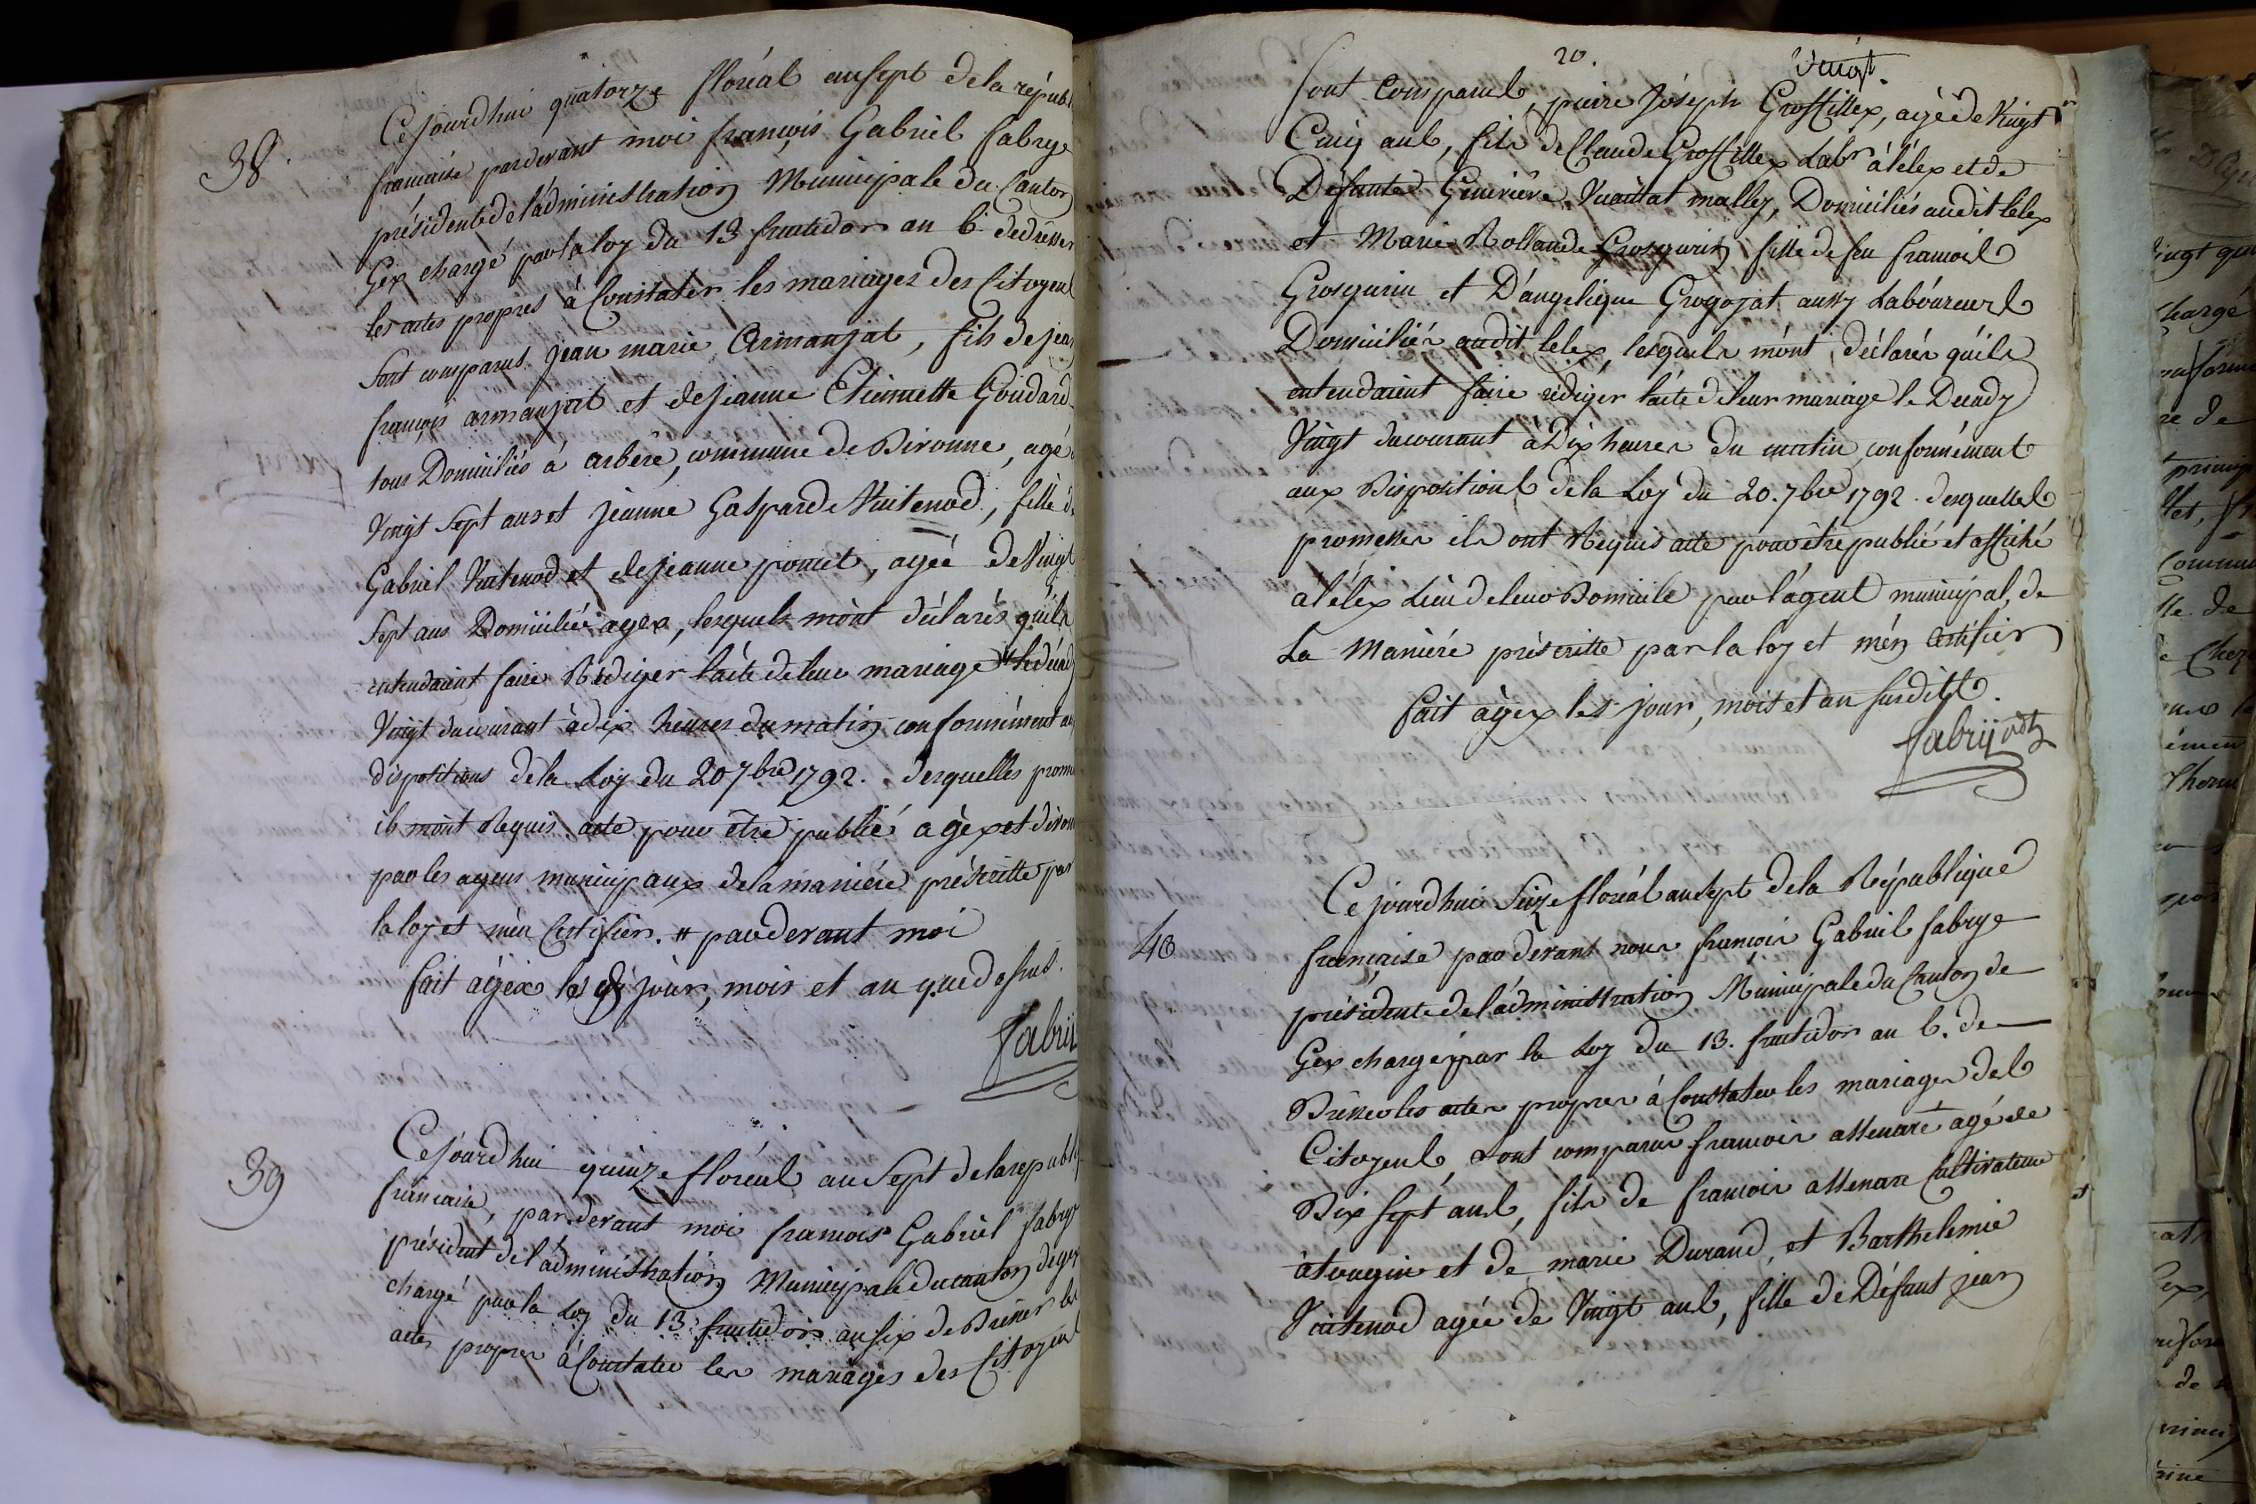 38.
Cejourdhui quatorze floréal ansept dela républ
francaise pardevant moi françois Gabriel fabrye
présidentedel'administration Municipale du Canton
Gex chargé parlaloy du 13 fructidor an 6 dedresser
les actes propres à Constater les mariages des Citoyens
sont comparus jean marie Armanjat, fils dejean
françois armanjat et dejeanne Etiennette Goudard
tous Domiciliés à arbère, commune de Divonne, agé
Vingt sept ans et jeanne Gasparde Vuitenod, fille de
Gabriel Vuitenod et dejeanne poncet, agée deVingt
Sept ans Domiciliée agex, lesquels m'ont déclarés qu'ils
entendaient faire Rediger l'acte deleur mariage # ledécady
Vingt ducourant àdix heures dumatin conformément aux
dispositions dela Loy du 20 7bre 1792. desquelles prom
ils m'ont Requis acte pour être publié agex et divonne
par les agens municipaux delamanière préscritte par
la loy et m'en Certifier. # pardevant moi
fait agex les dt jour, mois et an que dessus.
fabry
39
Cejourdhui quinze floréal an Sept delarepubl
francaise, pardevant moi francois Gabriel fabrye
président del'administration Municipale ducanton degex
chargé parla Loy du 13 fructidor ansix de Dresser les
actes propres à Constater les mariages des Citoyens
20.
Vingt.
sont Comparus, pierre Joseph Grossillex, agé de Vingt
Cinq ans, fils de Claude Grossillex Labr à lélex et de
Défunte Geneviève Vuaillat mallez, Domiciliés audit lelex
et Marie Rollande Grosgurin fille de feu francois
Grosgurin et D'angelique Grogojat aussy Laboureurs
Domiciliés audit lelex, lesquels m'ont déclarés qu'ils
entendaient faire rédiger l'acte deleur mariage le Decady
Vingt ducourant à Dix heures du matin conformément
aux Dispositions dela Loy du 20. 7bre 1792. desquelles
promesses ils ont Requis acte pour être publié et affiché
à lélex Lieu deleur Domicile par l'agent municipal, de
La Manière préscritte par la loy et m'en Certifier
fait àgex les jour, mois et an susdits.
fabry pdt
40
Ce jourdhui Seize floréal ansept dela République
française par devant nous françois Gabriel fabrye
présidente del'administration Municipale du Canton de
Gex chargé par la Loy du 13. fructidor an 6. de
Dresser les actes propres à Constater les mariages des
Citoyens, sont comparus francois assenare agé de
Dix sept ans, fils de francois assenare Cultivateur
àtougin et de marie Durand, et Barthelemie
Vuitenod agée de Vingt ans, fille de Défunt jean